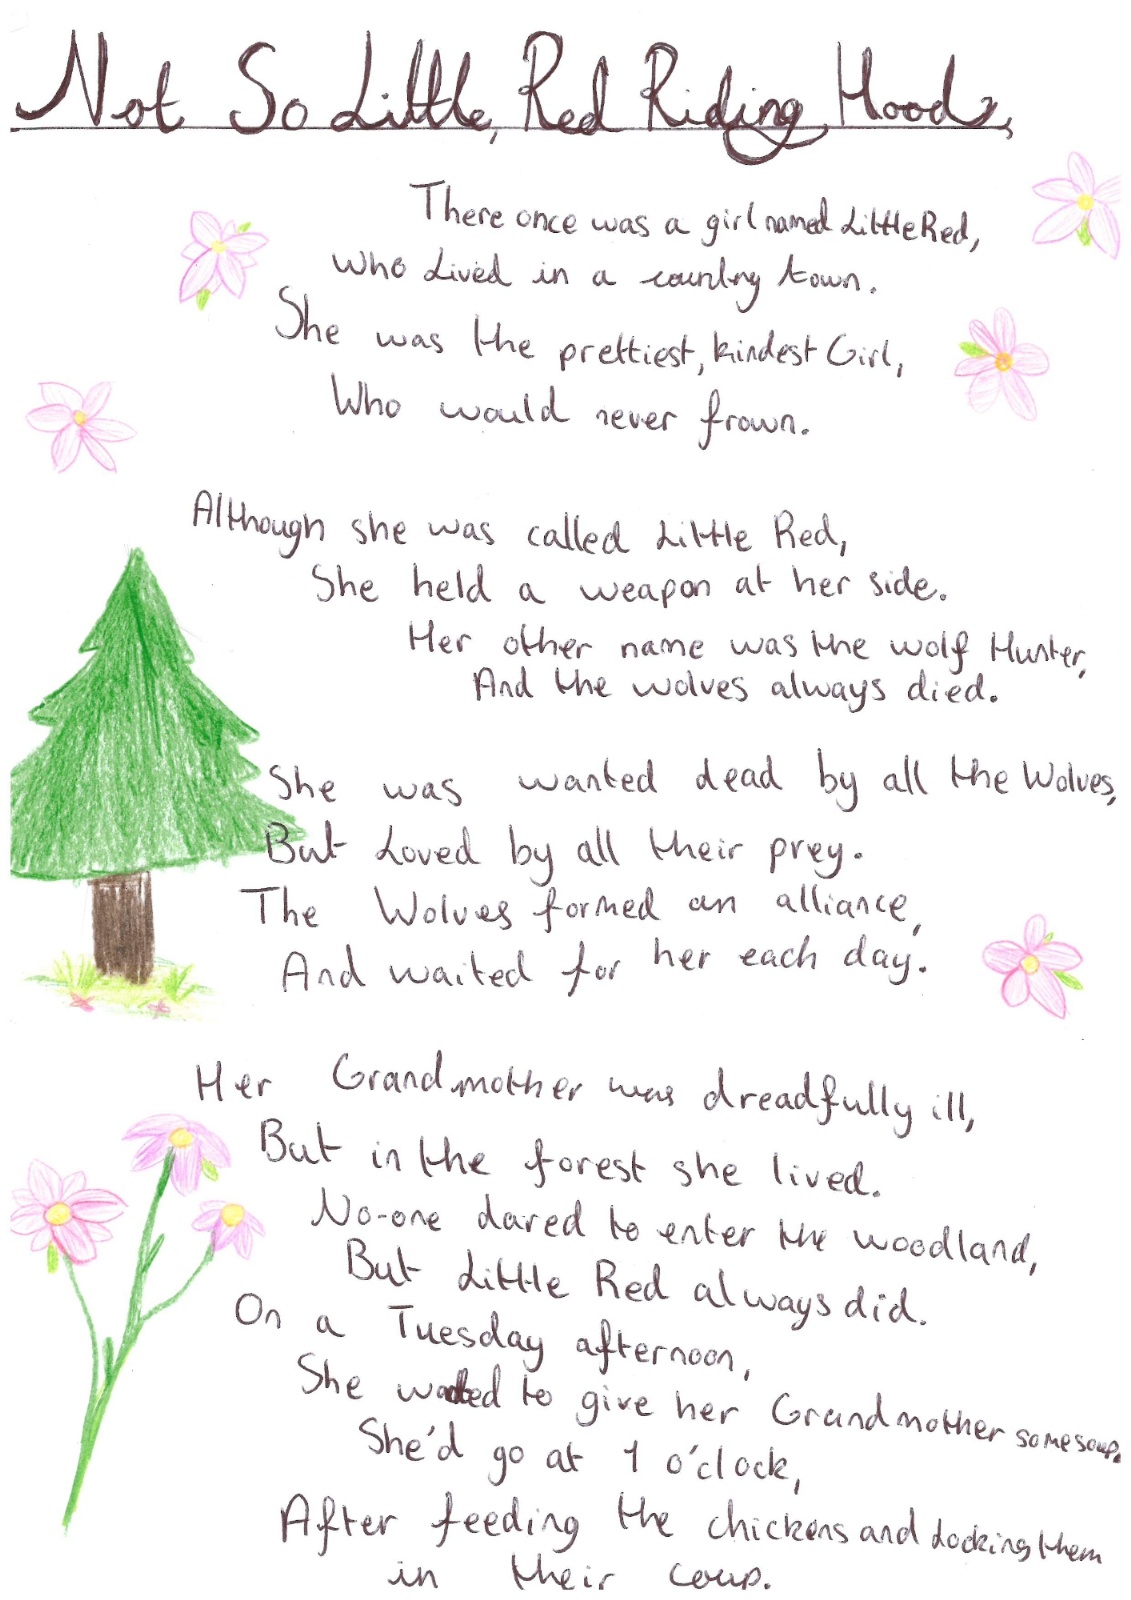 Not So Little, Red Riding Hood,
There once was a girl named Little Red,
Who Lived in a country town.
She was the prettiest, kindest Girl,
Who would never frown.
Although she was called Little Red,
She held a weapon at her side.
Her other name was the wolf Hunter,
And the wolves always died.
She was wanted dead by all the Wolves,
But Loved by all their prey.
The Wolves formed an alliance,
And waited for her each day.
Her Grandmother was dreadfully ill,
But in the forest she lived.
No-one dared to enter the woodland,
But Little Red always did.
On a Tuesday afternoon,
She wanted to give her Grandmother some soup.
She'd go at 1 o'clock,
After feeding the chickens and Locking them
in their coup.